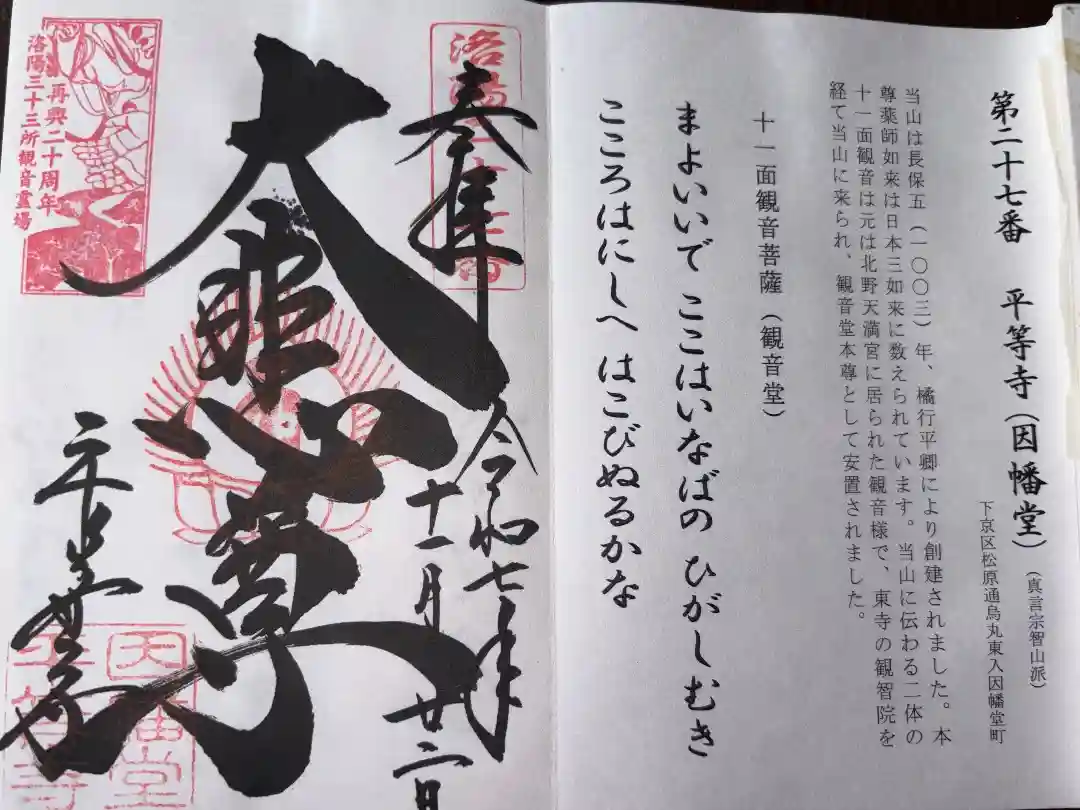 第二十七番　平等寺（因幡堂）（真言宗智山派）
下京区松原通烏丸東入因幡堂町
当山は長保五（一〇〇三）年、橘行平卿により創建されました。本
尊薬師如来は日本三如来に数えられています。当山に伝わる二体の
十一面観音は元は北野天満宮に居られた観音様で、東寺の観智院を
経て当山に来られ、観音堂本尊として安置されました。
十一面観音菩薩（観音堂）
まよいいで ここはいなばの ひがしむき
こころはにしへ はこびぬるかな
奉拝
令和七年
十一月廿二日
大悲尊
平等寺
因幡堂
再興二十周年
洛陽三十三所観音霊場